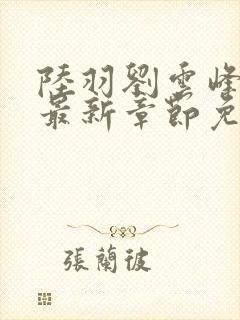 陸羽劉雲峰
最新章節免
張蘭彼